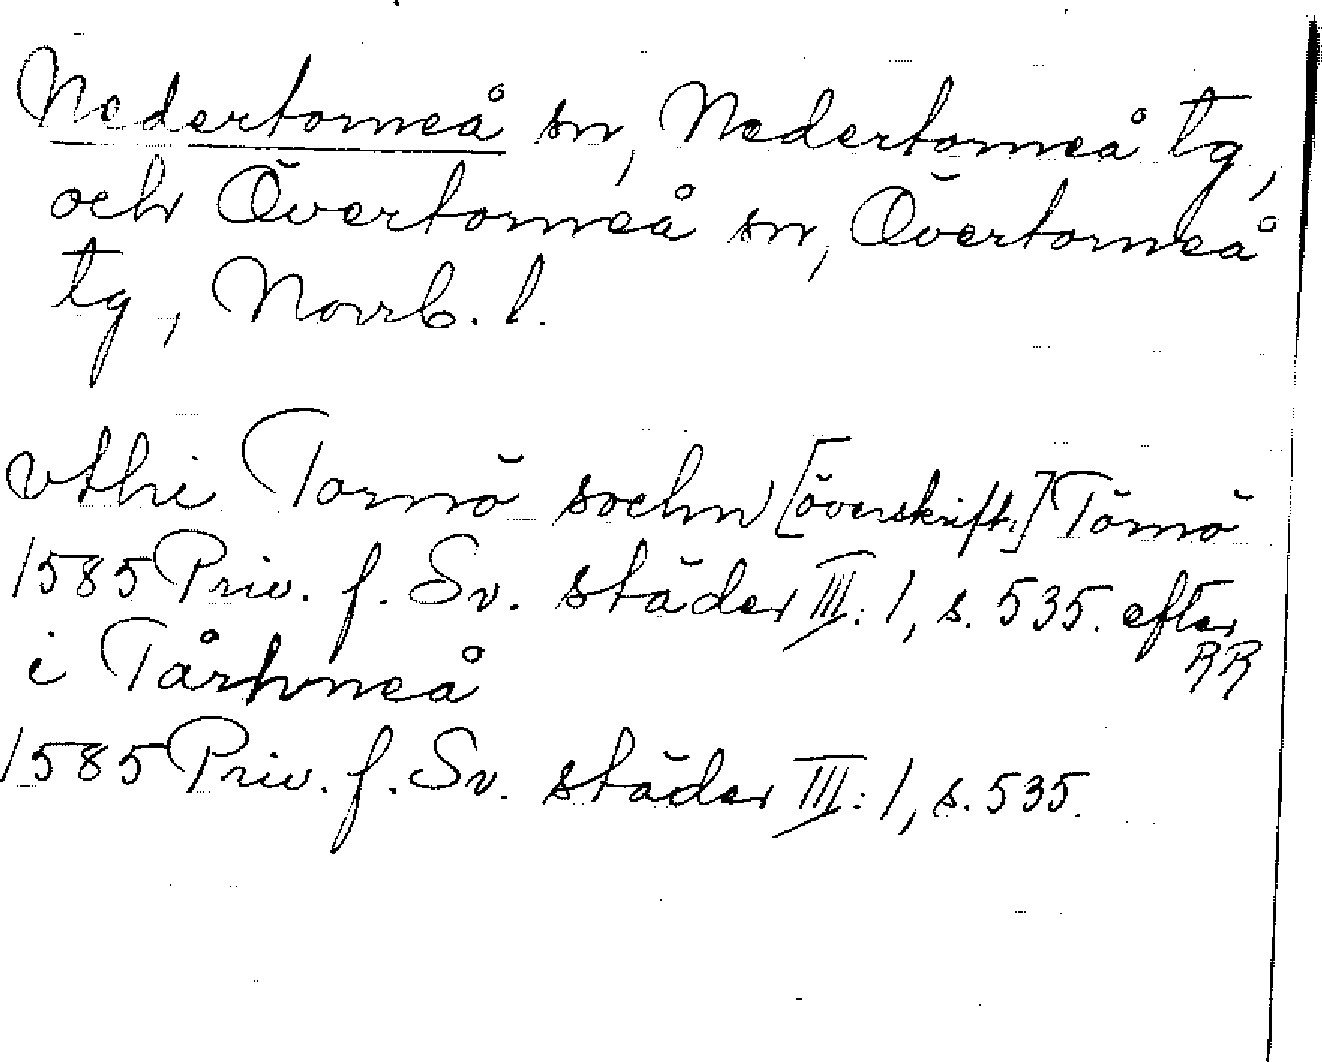 Nedertorneå sn, Nedertorneå tg,
och Övertorneå sn, Övertorneå
tg, Norrb. l.
vthi Tornö sochn [överskift:] Törnö
1585 Priv. f. Sv. städer III: 1, s. 535. efter
RR
i Tårhneå
1585 Priv. f. Sv. städer III: 1, s. 535.